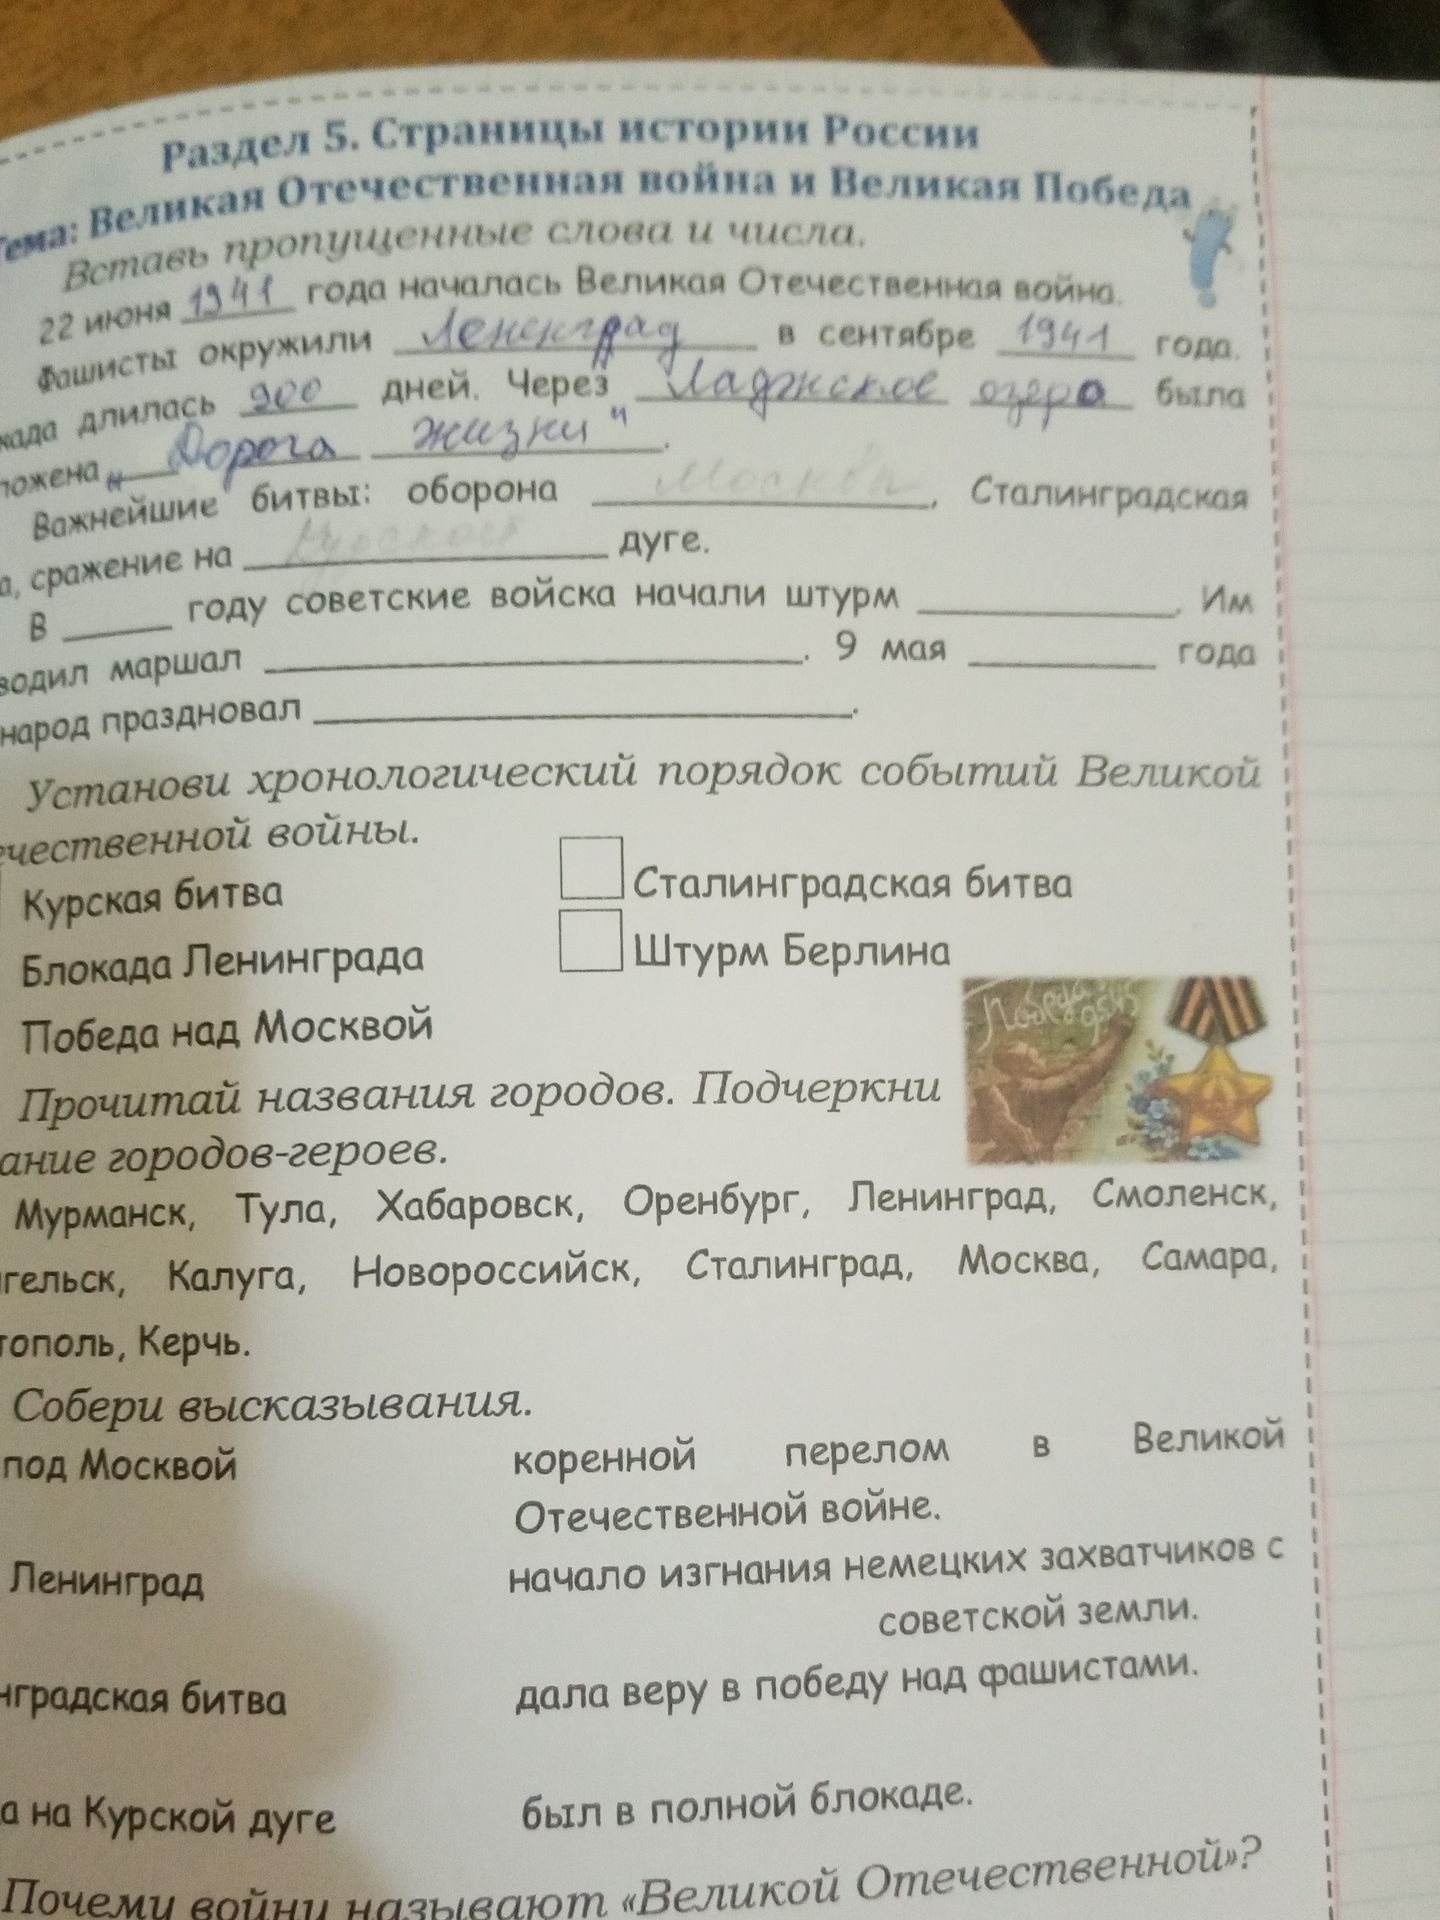 Раздел 5. Страницы истории России
Тема: Великая Отечественная война и Великая Победа
Вставь пропущенные слова и числа.
22 июня 1941 года началась Великая Отечественная война.
Фашисты окружили Ленинград в сентябре 1941 года.
када длилась 900 дней. Через Ладжское озеро была
ложена „ Дорога жизни "
Важнейшие битвы: оборона Москвы, Сталинградская
а, сражение на Курской дуге.
В ______ году советские войска начали штурм ______. Им
водил маршал ______. 9 мая ______ года
народ праздновал ______.
Установи хронологический порядок событий Великой
ечественной войны.
Курская битва Сталинградская битва
Блокада Ленинграда Штурм Берлина
Победа над Москвой
Победа 9545
Прочитай названия городов. Подчеркни
ание городов-героев.
Мурманск, Тула, Хабаровск, Оренбург, Ленинград, Смоленск,
нгельск, Калуга, Новороссийск, Сталинград, Москва, Самара,
тополь, Керчь.
Собери высказывания.
под Москвой коренной перелом в Великой
Отечественной войне.
Ленинград начало изгнания немецких захватчиков с
советской земли.
нградская битва дала веру в победу над фашистами.
а на Курской дуге был в полной блокаде.
Почему войну называют «Великой Отечественной»?